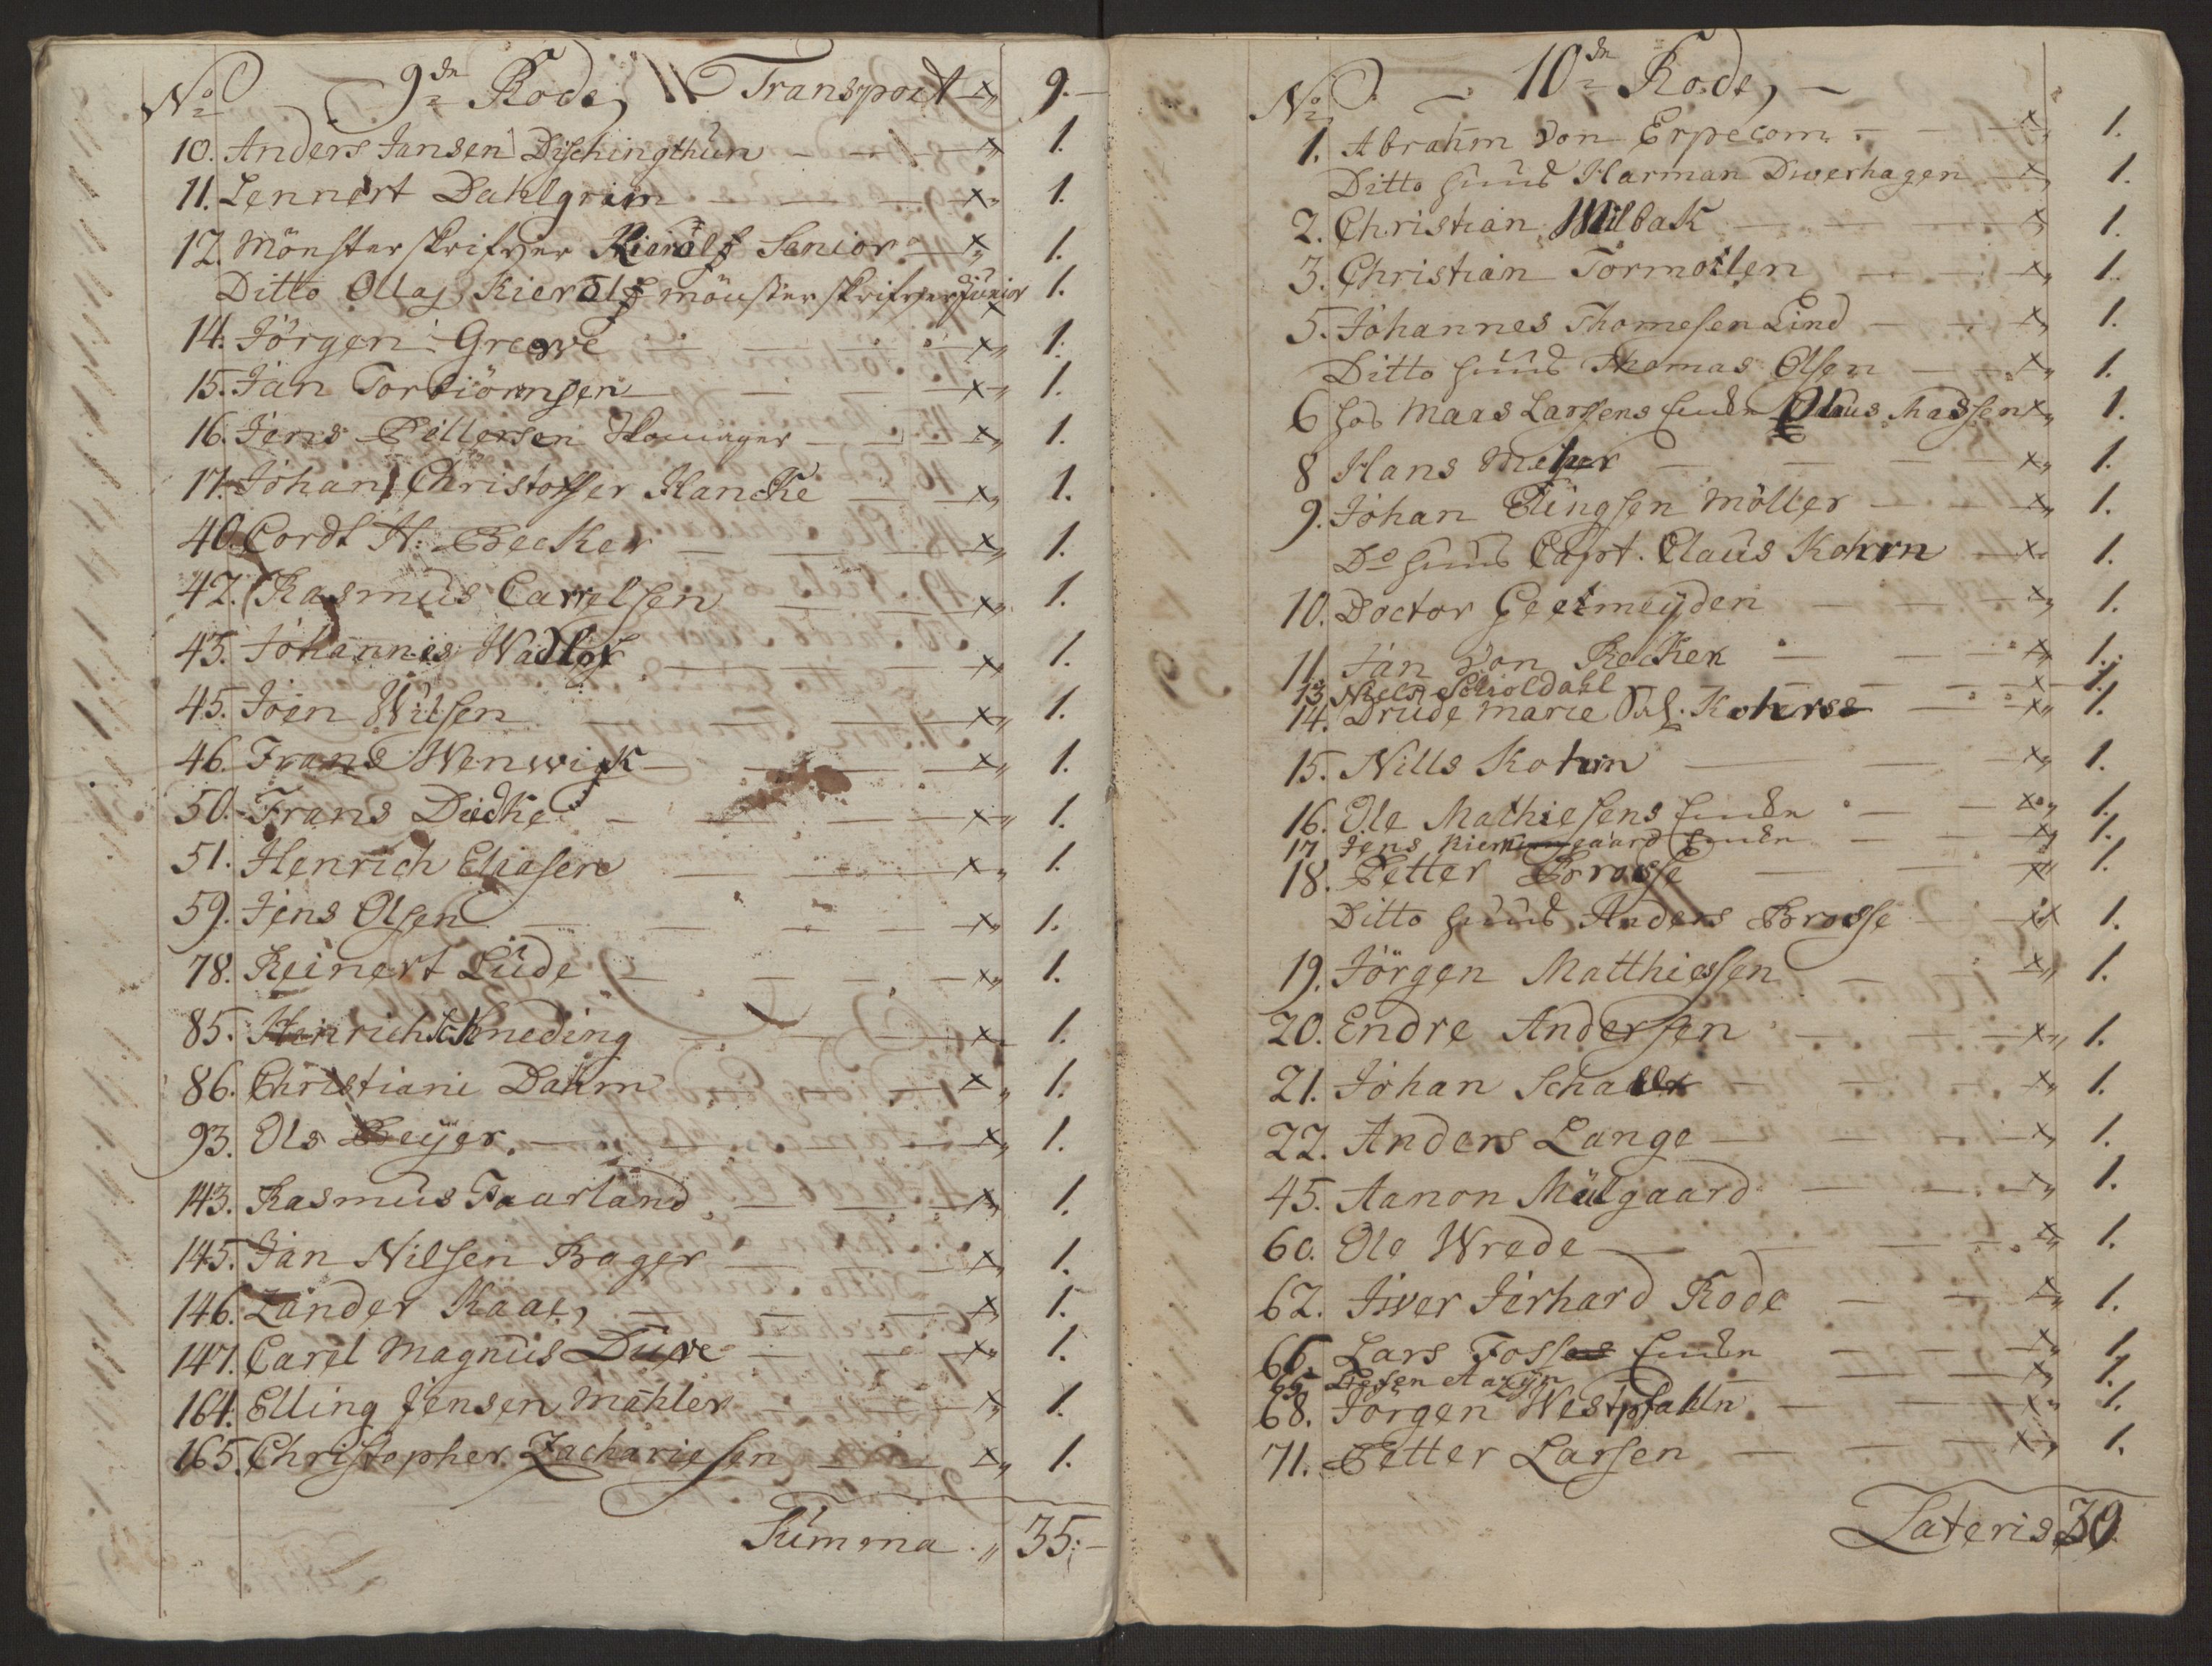 No 9de Rode, Transport 9.
10. Anders Jansen Dischingthun 1.
11. Lennert Dahlgrim 1.
12. Mönsterskrifver Kierölf Senior 1.
Ditto Ollaj Kierölf mönsterskrifver Junior 1.
14. Jörgen Greeve 1.
15. Jan Torbiörnsen 1.
16. Jens Pettersen Skomager 1.
17. Johan Christoffer Hancke 1.
40. Cordt H: Becker 1.
42. Rasmus Carrelsen 1.
43. Johannes Wadlof 1.
45. Joen Wilsen 1.
46. Frans Wenwick 1.
50. Frans Diecke 1.
51. Henrich Eliasen 1.
59. Jens Olsen 1.
78. Reinert Lüde 1.
85. Henrich Schneding 1.
86. Christiani Dahm 1.
93. Ols Beÿer 1.
143. Rasmus Taarland 1.
145. Jan Nilsen Bager 1.
146. Zander Kaae, 1.
147. Carel Magnus Duve 1.
164. Elling Jensen Mähler 1.
165. Christopher Zachariesen 1.
Summa 35:
No 10de Rode,
1. Abrahm von Erpecom 1.
Ditto huus Harman Dwerhagen 1.
2. Christian Milbak 1.
3. Christian Tormöllen 1.
5. Johannes Thomesen Lind 1.
Ditto huus Thomas Olsen 1.
6 hos Maas Larsens Encke Claus Madsen 1.
8 Hans Meÿer 1.
9. Johan Ellingsen Möller 1.
Do huus Capt. Claus Kohrn 1.
10. Doctor Geelmeÿden 1.
11. Jan von Recken 1.
13 Niels Schioldahl 1.
14. Drude Marie Sal. Kohrss 1.
15. Nills Kohrn 1.
16. Ole Mathiesens Encke 1.
17 Jens Kierregaard Encke 1.
18. Petter Brosse 1.
Ditto huus Anders Brosse 1.
19. Jörgen Matthiessen 1.
20. Endre Andersen 1.
21. Johan Schaeet 1.
22. Anders Lange 1.
45. Aanon Mülgaard 1.
60. Ole Wrede 1.
62. Iwer Jerhard Rode 1.
65. Lars Fosses Encke 1.
1.
68. Jörgen Westphahln 1.
71. Petter Larsen 1.
Lateris 30